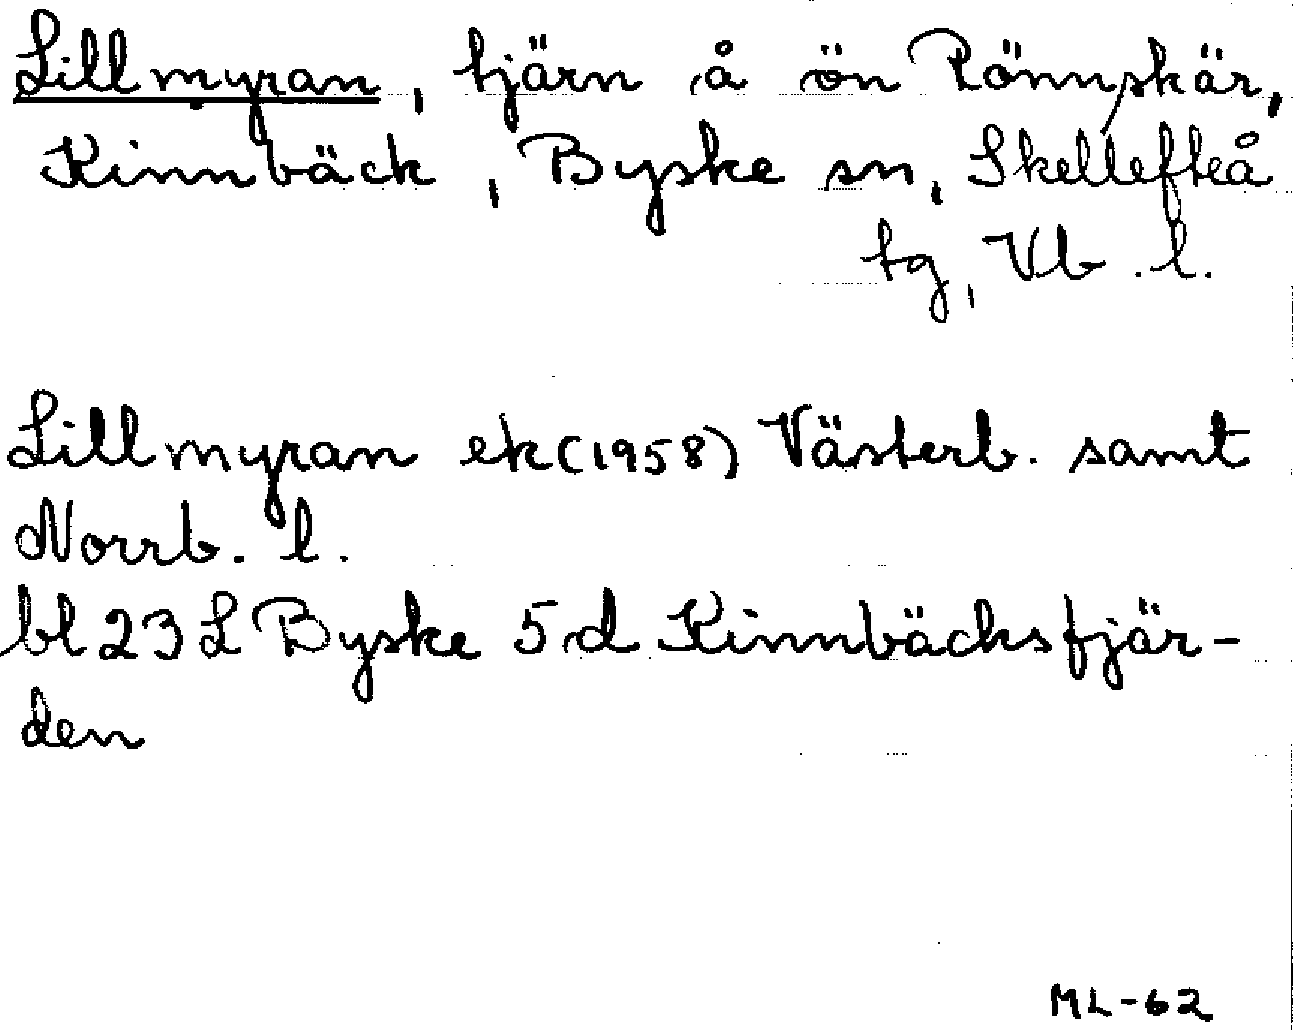 Lillmyran, tjärn å ön Rönnskär,
Kinnbäck, Byske sn, Skellefteå
tg, Vb. l.
Lillmyran ek(1958) Västerb. samt
Norrb. l.
bl 23 L Byske 5 d Kinnbäcksfjär-
den
ML-62